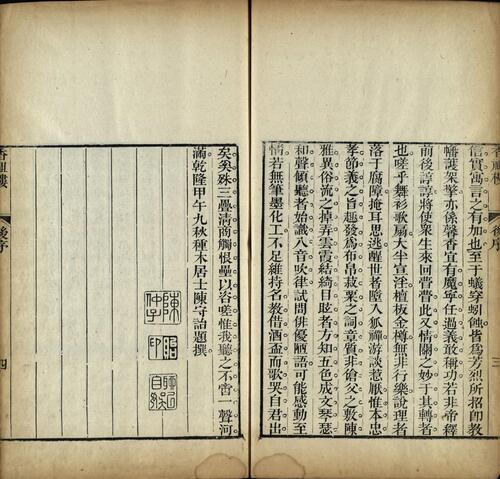 信實寓言之有加也至于蟻穿蚓蝕皆爲芳烈所招卽教
幡護架擎亦係馨香宜有魔寧任過義敢稱功若非帝釋
前後諄諄將使衆生來回瞢瞢此又情關之妙于其轉者
也嗟乎舞衫歌扇大半宣淫檀板金樽無非行樂說理者
落于腐障掩耳思逃醒世者墮入狐禪游談惹厭惟本忠
孝節義之旨趣發爲布帛菽粟之詞章質非傖父之敷陳
雅異俗流之掉弄雲霞結綺目眩者方知五色成文琴瑟
和聲傾聽者始識八音吹律試問俳優陋語可能感動至
情若無筆墨化工不足維持名教借酒盃而歌哭自君出
香樓
後序
三
矣奚殊三疊清商觸恨壘以咨嗟惟我聽之不啻一聲河
滿乾隆甲午九秋種木居士陳守詒題撰
陳
印
仲子
香樓
後序
四